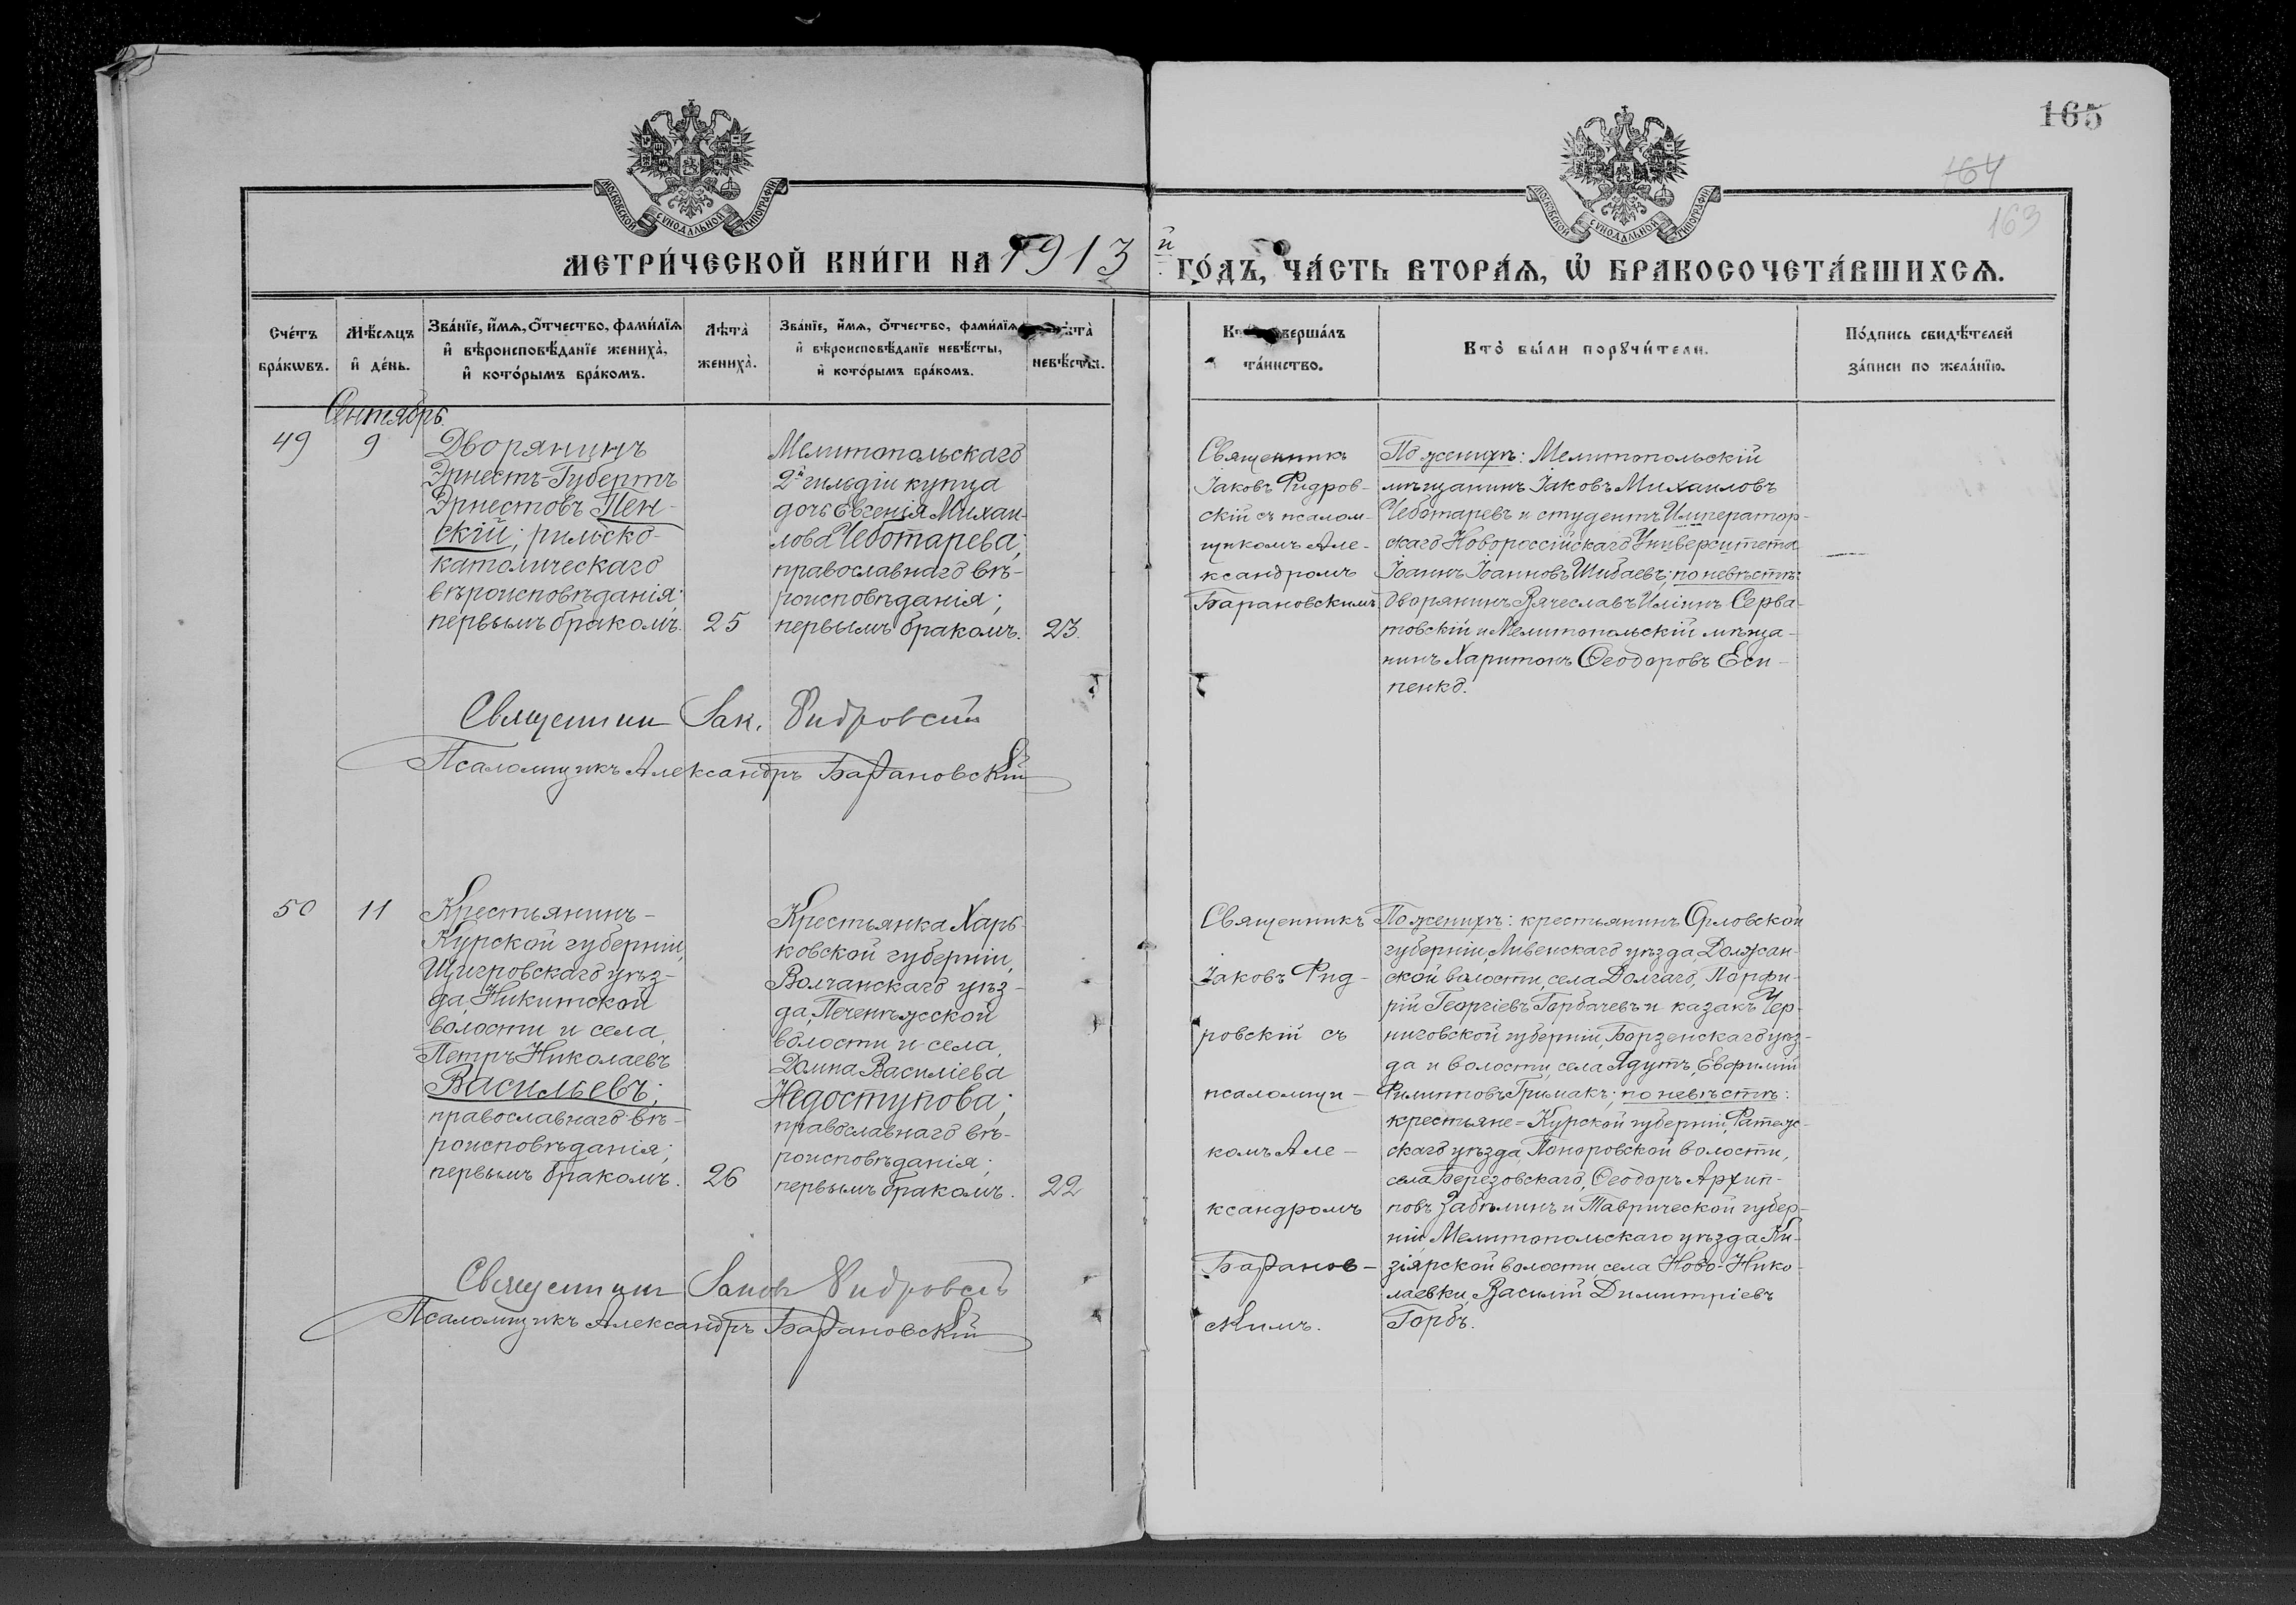 165
164
163
МОСКОВСКОЙ СѴНОДАЛЬНОЙ ТИПОГРАФІИ
МОСКОВСКОЙ СѴНОДАЛЬНОЙ ТИПОГРАФІИ
МЕТРИ́ЧЕСКОЙ КНИ́ГИ НА 1913 й ГО́ДЪ, ЧА́СТЬ ВТОРА́Ѧ, Ѽ БРАКОСОЧЕТА́ВШИХСѦ.
Сче́тъ бра́кѡвъ.
Мѣ́сяцъ и҆ де́нь.
Зва́нїе, и҆́мѧ, ѻ҆́тчество, фами́лїѧ и҆ вѣроисповѣ́данїе жениха̀, и҆ кото́рымъ бра́комъ.
Лѣ́та̀ жениха̀.
Зва́нїе, и҆́мѧ, ѻ҆́тчество, фами́лїѧ и҆ вѣроисповѣ́данїе невѣ́сты, и҆ кото́рымъ бра́комъ.
невѣ́сты.
та́инство.
Кто̀ бы́ли порꙋчи́тели.
По́дпись свидѣ́телей за́писи по жела́нїю.
Сентябрь.
49
9
Дворянинъ
Эрнестъ-Губертъ
Эрнестовъ Пен-
скій; римско-
католическаго
вѣроисповѣданія;
первымъ бракомъ.
25
Мелитопольскаго
2й гильдіи купца
дочь Евгенія Михаи-
лова Чеботарева;
православнаго вѣ-
роисповѣданія;
первымъ бракомъ.
23.
Священникъ
Іаковъ Фидров-
скій съ псалом-
щикомъ Але-
ксандромъ
Барановскимъ
По женихѣ: Мелитопольскій
мѣщанинъ Іаковъ Михаиловъ
Чеботаревъ и студентъ Император-
скаго Новороссійскаго Университета
Іоаннъ Іоанновъ Шибаевъ; по невѣстѣ:
дворянинъ Вячеславъ Иліинъ Серва-
товскій и Мелитопольскій мѣща-
нинъ Харитонъ Ѳеодоровъ Еси-
пенко.
Священник Іак. Фидровскій
Псаломщикъ Александръ Барановскій
50
11
Крестьянинъ-
Курской губерніи,
Щигровскаго уѣз-
да, Никитской
волости и села,
Петръ Николаевъ
Васильевъ;
православнаго вѣ-
роисповѣданія;
первымъ бракомъ.
26
Крестьянка Харь-
ковской губерніи,
Волчанскаго уѣз-
да, Печенѣжской
волости и села,
Домна Василіева
Недоступова;
православнаго вѣ-
роисповѣданія;
первымъ бракомъ.
22
Священникъ
Іаковъ Фид-
ровскій съ
псаломщи-
комъ Але-
ксандромъ
Баранов-
скимъ.
По женихѣ: крестьянинъ Орловской
губерніи, Ливенскаго уѣзда, Должан-
ской волости, села Долгаго, Порфи-
рій Георгіевъ Горбачевъ и казакъ Чер-
ниговской губерніи, Борзенскаго уѣз-
да и волости, села Ядутъ, Евфимій
Филипповъ Гримакъ; по невѣстѣ:
крестьяне = Курской губерніи, Фатеж-
скаго уѣзда, Поныровской волости,
села Березовскаго, Ѳеодоръ Архип-
повъ Забѣлинъ и Таврической губер-
ніи, Мелитопольскаго уѣзда, Ки-
зіярской волости, села Ново-Нико-
лаевки, Василій Димитріевъ
Горбъ.
Священник Іаковъ Фидровскій
Псаломщикъ Александръ Барановскій